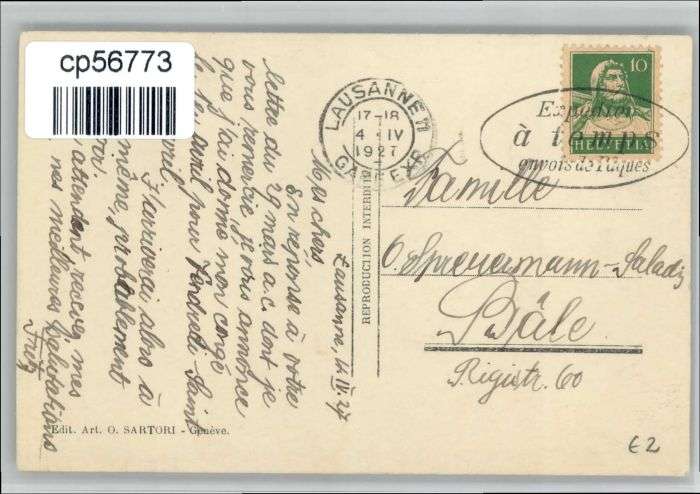 cp56773
LAUSANNE
17-18
4 IV
1927
10
HELVETIA
Expédition
à temps
envois de Pâques
REPRODUCTION INTERDITE
Famille
O. Spreuermann-Saladin
Bâle
Rigistr. 60
Lausanne, 4. IV. 27
Mes chers,
En réponse à votre
lettre du 29 mars a.c. dont je
vous remercie, je vous annonce
que j'ai donné mon congé
le 1er avril pour Vendredi Saint
avril
J'arriverai alors à
même, probablement
soir.
attendant recevez mes
mes meilleures Salutations
Fritz
Edit. Art. O. SARTORI - Genève.
€2